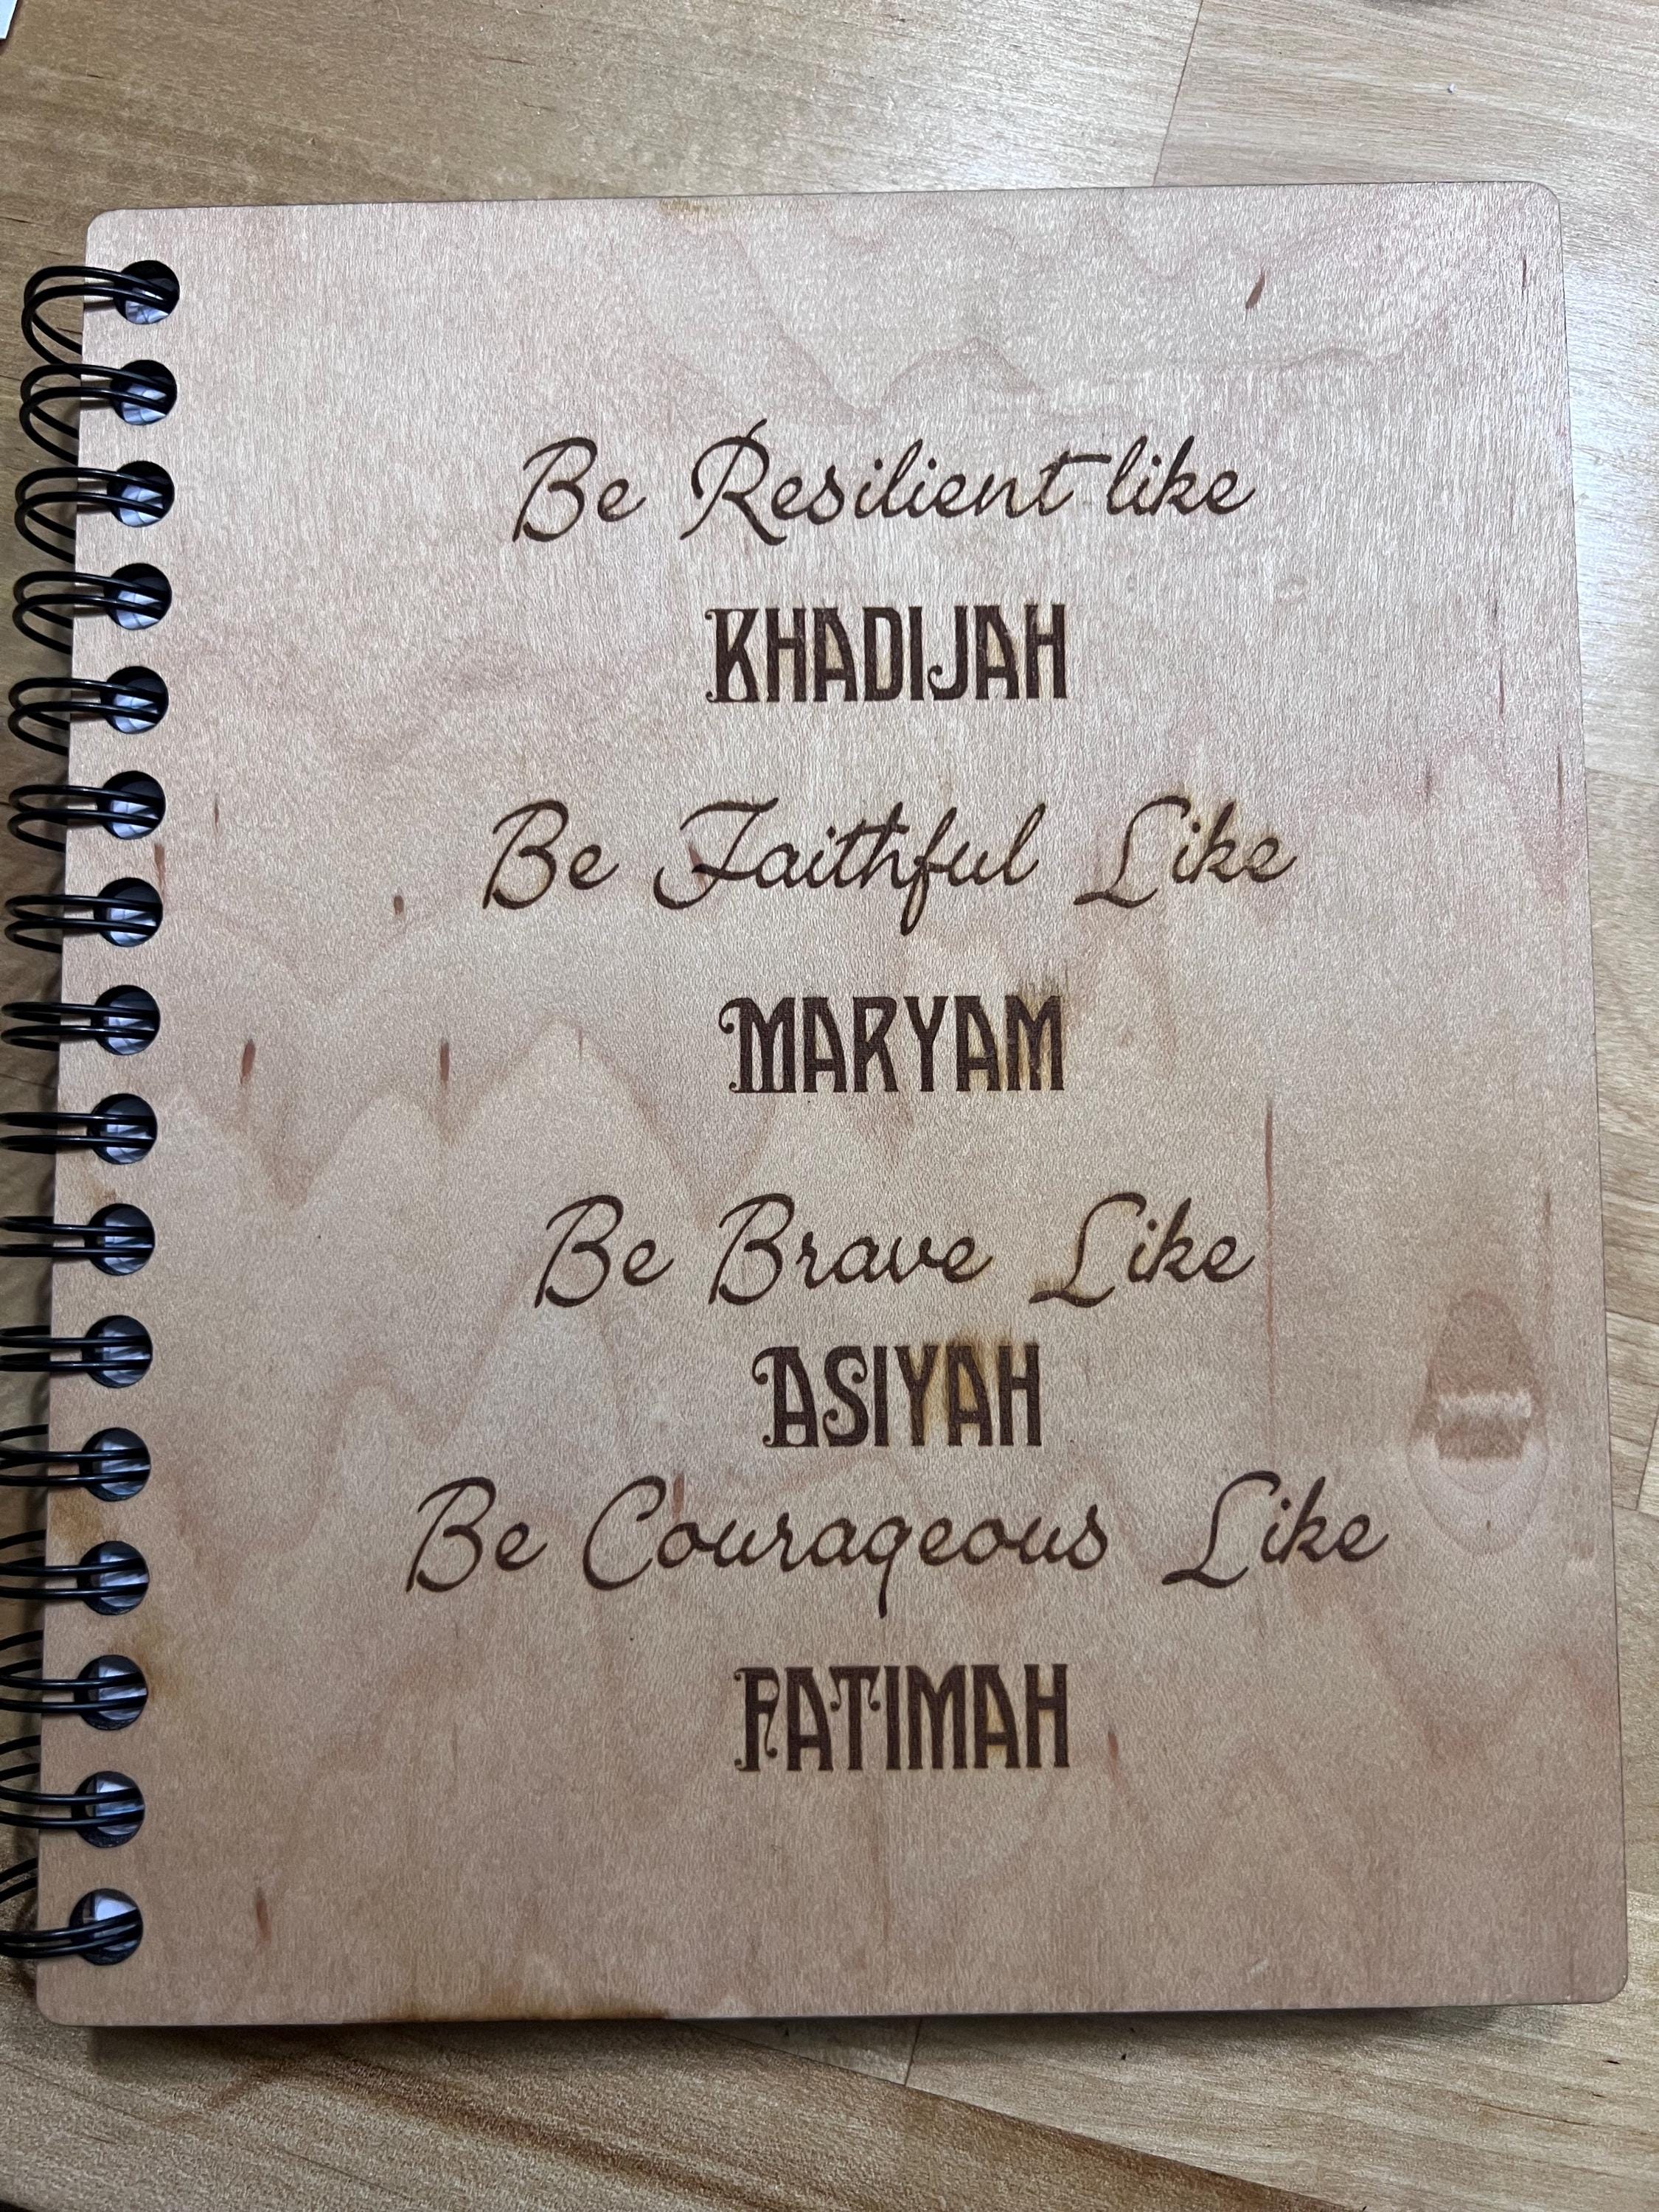 Be Resilient like
KHADIJAH
Be Faithful Like
MARYAM
Be Brave Like
ASIYAH
Be Courageous Like
FATIMAH